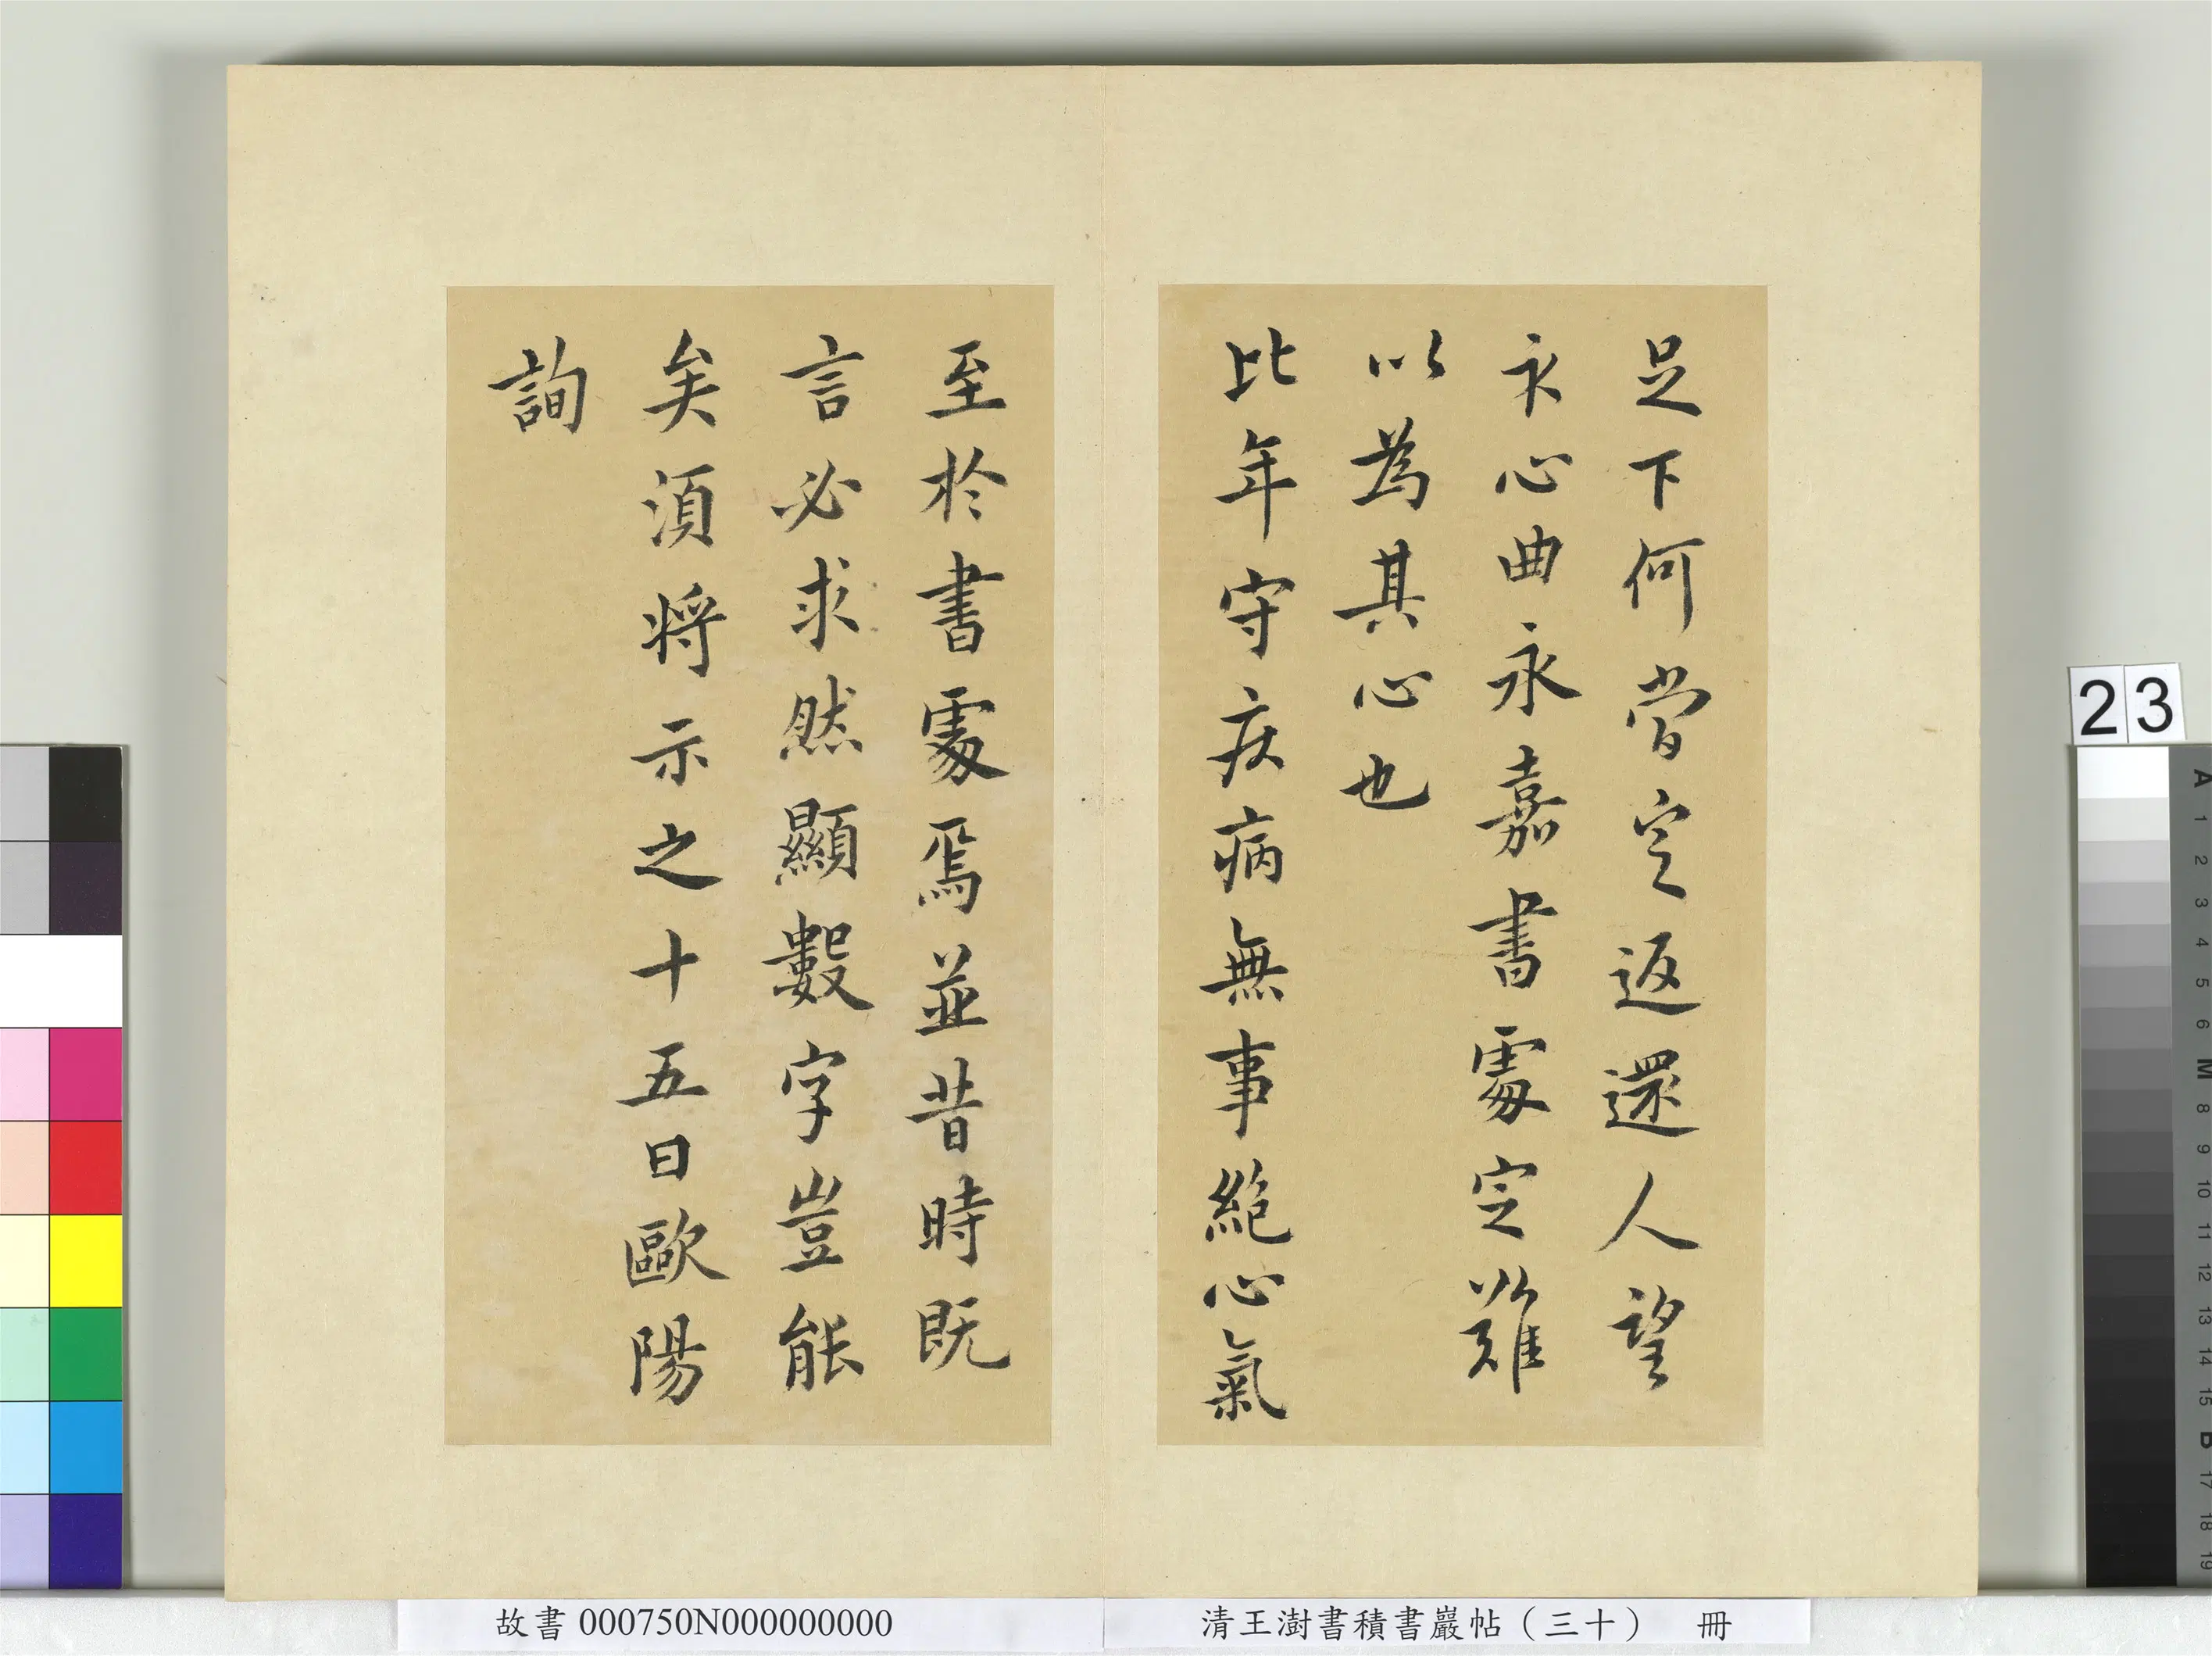 足下何當定返還人望
永心曲永嘉書處定難
以為其心也
比年守疾病無事絕心氣
至於書處焉並昔時既
言必求然顯數字豈能
矣須將示之十五日歐陽
詢
故書 000750N000000000
清王澍書積書巖帖（三十） 冊
23
A
1
2
3
4
5
6
M
8
9
10
11
12
13
14
15
B
17
18
19